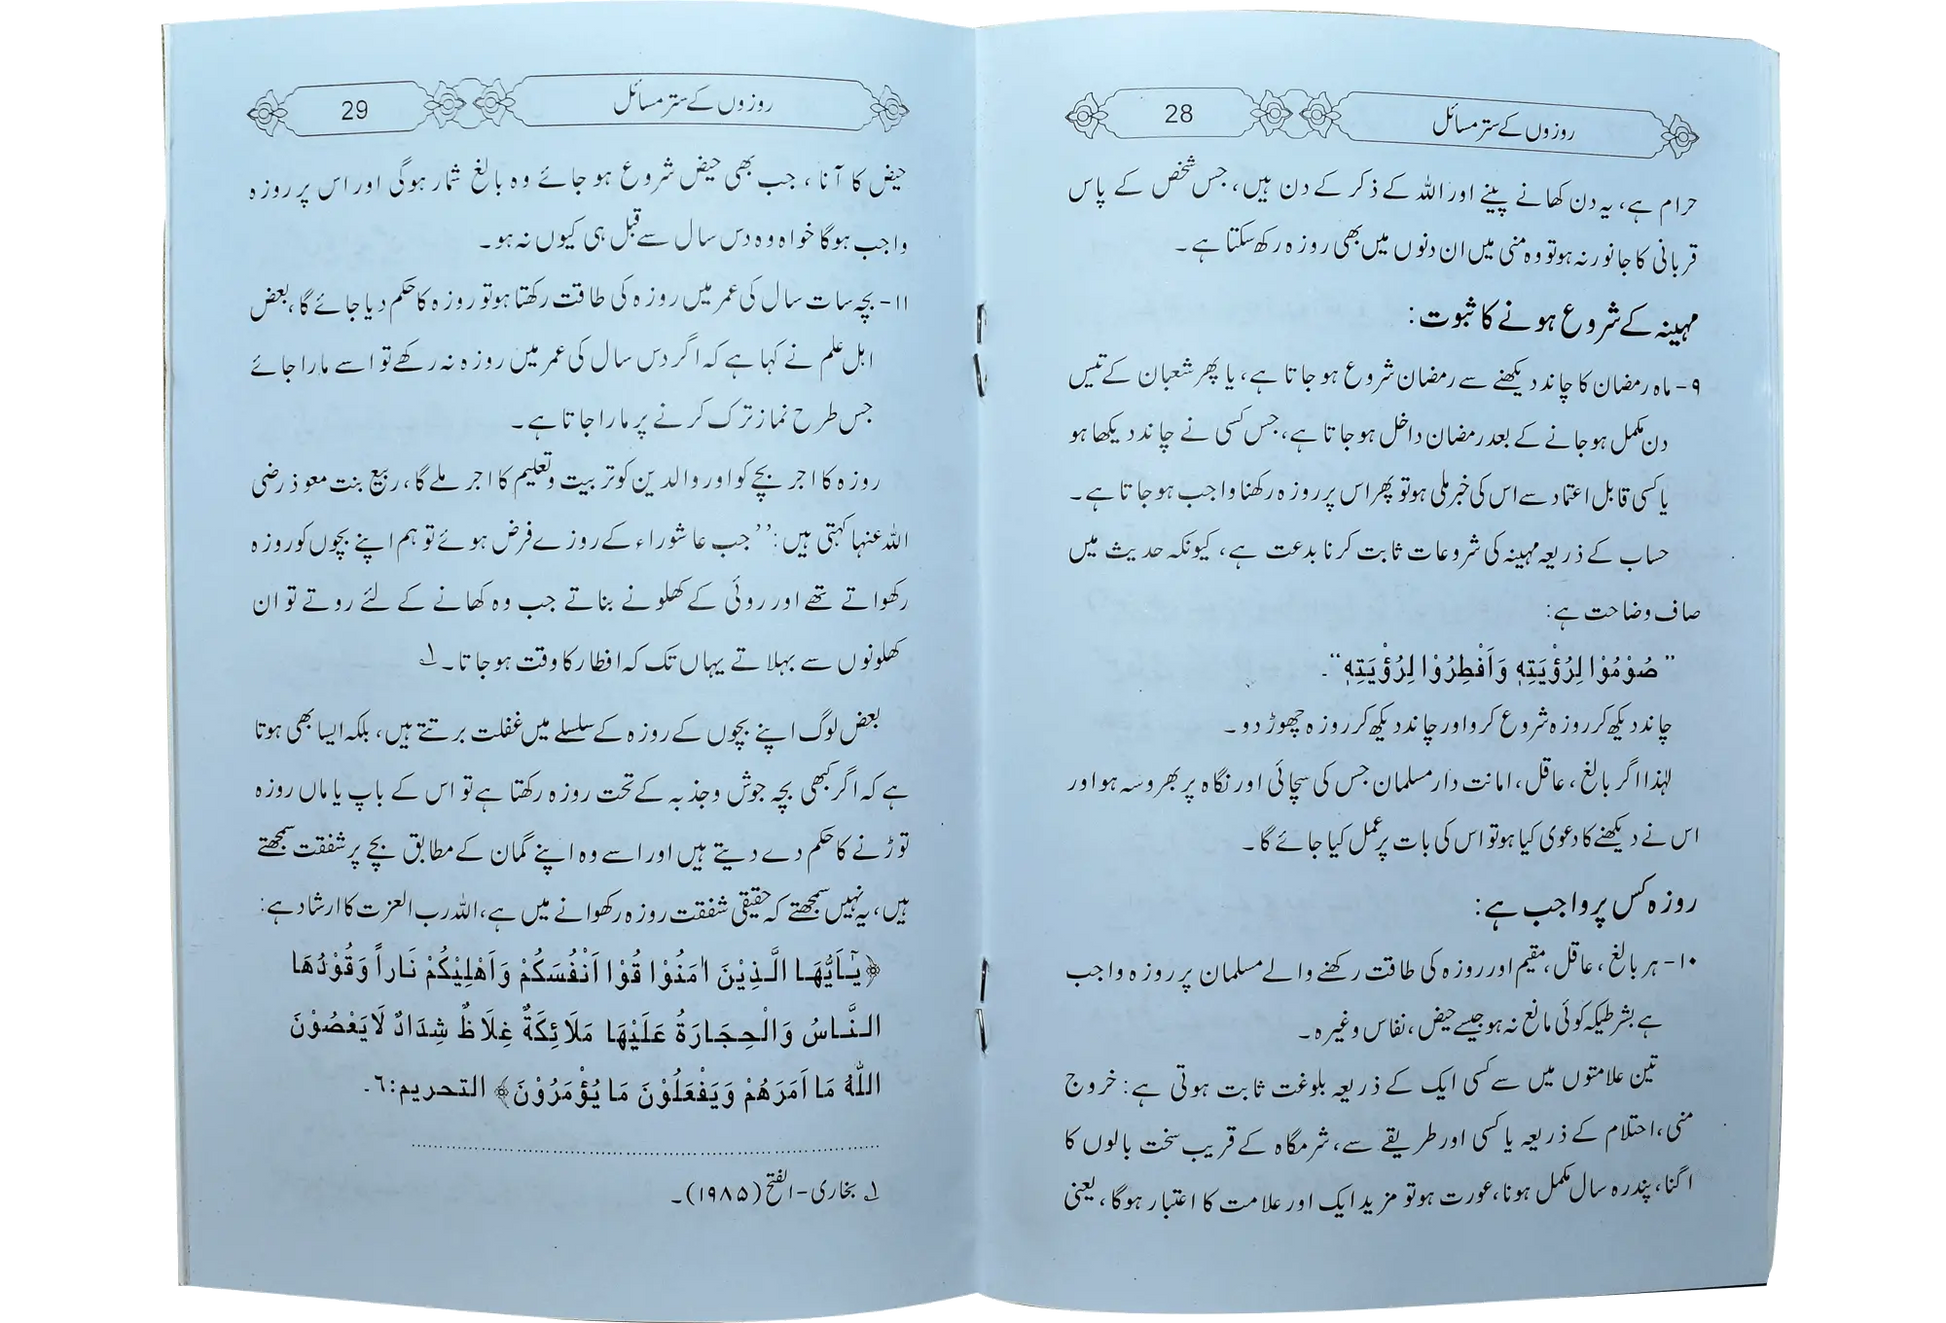 روزوں کے ستر مسائل
28
حرام ہے، یہ دن کھانے پینے اور اللہ کے ذکر کے دن ہیں، جس شخص کے پاس
قربانی کا جانور نہ ہو تو وہ منی میں ان دنوں میں بھی روزہ رکھ سکتا ہے۔
مہینہ کے شروع ہونے کا ثبوت:
۹- ماہ رمضان کا چاند دیکھنے سے رمضان شروع ہو جاتا ہے، یا پھر شعبان کے تیس
دن مکمل ہو جانے کے بعد رمضان داخل ہو جاتا ہے، جس کسی نے چاند دیکھا ہو
یا کسی قابل اعتماد سے اس کی خبر ملی ہو تو پھر اس پر روزہ رکھنا واجب ہو جاتا ہے۔
حساب کے ذریعہ مہینہ کی شروعات ثابت کرنا بدعت ہے، کیونکہ حدیث میں
صاف وضاحت ہے:
”صُوْمُوْا لِرُؤْيَتِهٖ وَاَفْطِرُوْا لِرُؤْيَتِهٖ“.
چاند دیکھ کر روزہ شروع کرو اور چاند دیکھ کر روزہ چھوڑ دو۔
لہٰذا اگر بالغ، عاقل، امانت دار مسلمان جس کی سچائی اور نگاہ پر بھروسہ ہو اور
اس نے دیکھنے کا دعوی کیا ہو تو اس کی بات پر عمل کیا جائے گا۔
روزہ کس پر واجب ہے:
۱۰- ہر بالغ، عاقل، مقیم اور روزہ کی طاقت رکھنے والے مسلمان پر روزہ واجب
ہے بشرطیکہ کوئی مانع نہ ہو جیسے حیض، نفاس وغیرہ۔
تین علامتوں میں سے کسی ایک کے ذریعہ بلوغت ثابت ہوتی ہے: خروج
منی، احتلام کے ذریعہ یا کسی اور طریقے سے، شرمگاہ کے قریب سخت بالوں کا
اگنا، پندرہ سال مکمل ہونا، عورت ہو تو مزید ایک اور علامت کا اعتبار ہوگا، یعنی
روزوں کے ستر مسائل
29
حیض کا آنا، جب بھی حیض شروع ہو جائے وہ بالغ شمار ہوگی اور اس پر روزہ
واجب ہوگا خواہ وہ دس سال سے قبل ہی کیوں نہ ہو۔
۱۱- بچہ سات سال کی عمر میں روزہ کی طاقت رکھتا ہو تو روزہ کا حکم دیا جائے گا، بعض
اہل علم نے کہا ہے کہ اگر دس سال کی عمر میں روزہ نہ رکھے تو اسے مارا جائے
جس طرح نماز ترک کرنے پر مارا جاتا ہے۔
روزہ کا اجر بچے کو اور والدین کو تربیت و تعلیم کا اجر ملے گا، ربیع بنت معوذ رضی
اللہ عنہا کہتی ہیں: ’’جب عاشوراء کے روزے فرض ہوئے تو ہم اپنے بچوں کو روزہ
رکھواتے تھے اور روئی کے کھلونے بناتے جب وہ کھانے کے لئے روتے تو ان
کھلونوں سے بہلاتے یہاں تک کہ افطار کا وقت ہو جاتا۔ ۱
بعض لوگ اپنے بچوں کے روزہ کے سلسلے میں غفلت برتتے ہیں، بلکہ ایسا بھی ہوتا
ہے کہ اگر کبھی بچہ جوش و جذبہ کے تحت روزہ رکھتا ہے تو اس کے باپ یا ماں روزہ
توڑنے کا حکم دے دیتے ہیں اور اسے وہ اپنے گمان کے مطابق بچے پر شفقت سمجھتے
ہیں، یہ نہیں سمجھتے کہ حقیقی شفقت روزہ رکھوانے میں ہے، اللہ رب العزت کا ارشاد ہے:
﴿يٰٓاَيُّهَا الَّذِيْنَ اٰمَنُوْا قُوْا اَنْفُسَكُمْ وَاَهْلِيْكُمْ نَاراً وَقُوْدُهَا
النَّاسُ وَالْحِجَارَةُ عَلَيْهَا مَلَائِكَةٌ غِلَاظٌ شِدَادٌ لَا يَعْصُوْنَ
اللّٰهَ مَا اَمَرَهُمْ وَيَفْعَلُوْنَ مَا يُؤْمَرُوْنَ﴾ التحريم:٦.
۱ بخاری-الفتح (۱۹۸۵)۔